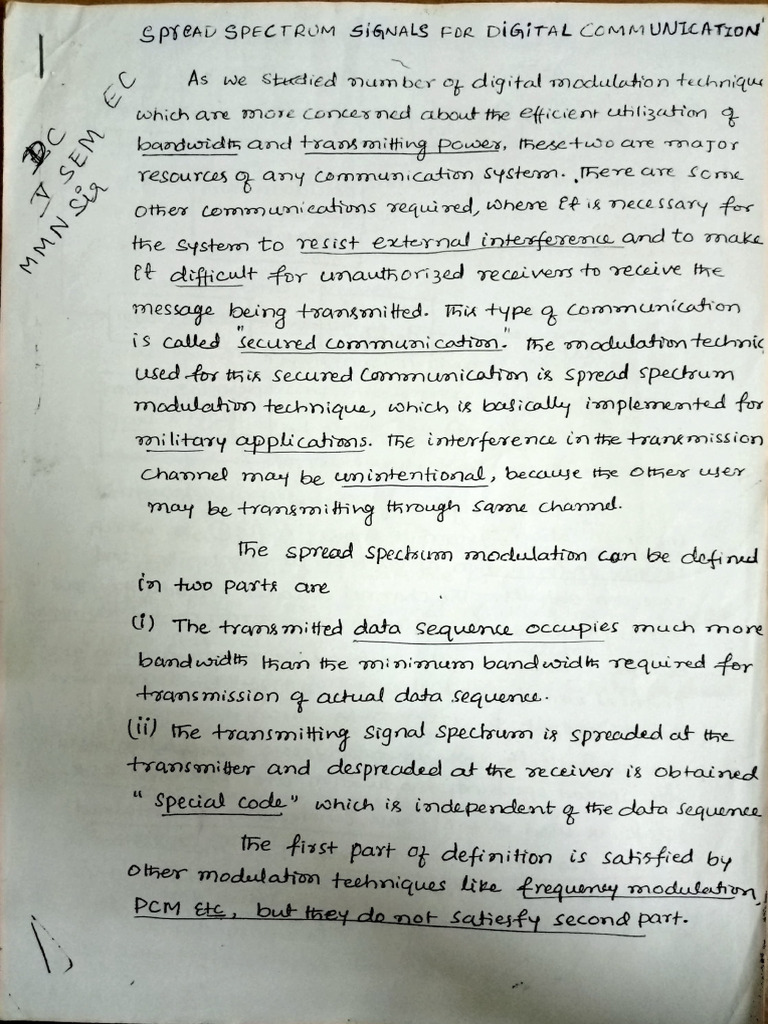 SPREAD SPECTRUM SIGNALS FOR DIGITAL COMMUNICATION
1
DC EC
V SEM
MMN Sir
As we studied number of digital modulation technique
which are more concerned about the efficient utilization of
bandwidth and transmitting power, these two are major
resources of any communication system. There are some
other communications required, where it is necessary for
the system to resist external interference and to make
it difficult for unauthorized receivers to receive the
message being transmitted. This type of communication
is called "secured communication." The modulation technic
used for this secured communication is spread spectrum
modulation technique, which is basically implemented for
military applications. The interference in the transmission
channel may be unintentional, because the other user
may be transmitting through same channel.
The spread spectrum modulation can be defined
in two parts are
(i) The transmitted data sequence occupies much more
bandwidth than the minimum bandwidth required for
transmission of actual data sequence.
(ii) The transmitting signal spectrum is spreaded at the
transmitter and despreaded at the receiver is obtained
"special code" which is independent of the data sequence
The first part of definition is satisfied by
other modulation techniques like frequency modulation,
PCM etc, but they do not satiesfy second part.